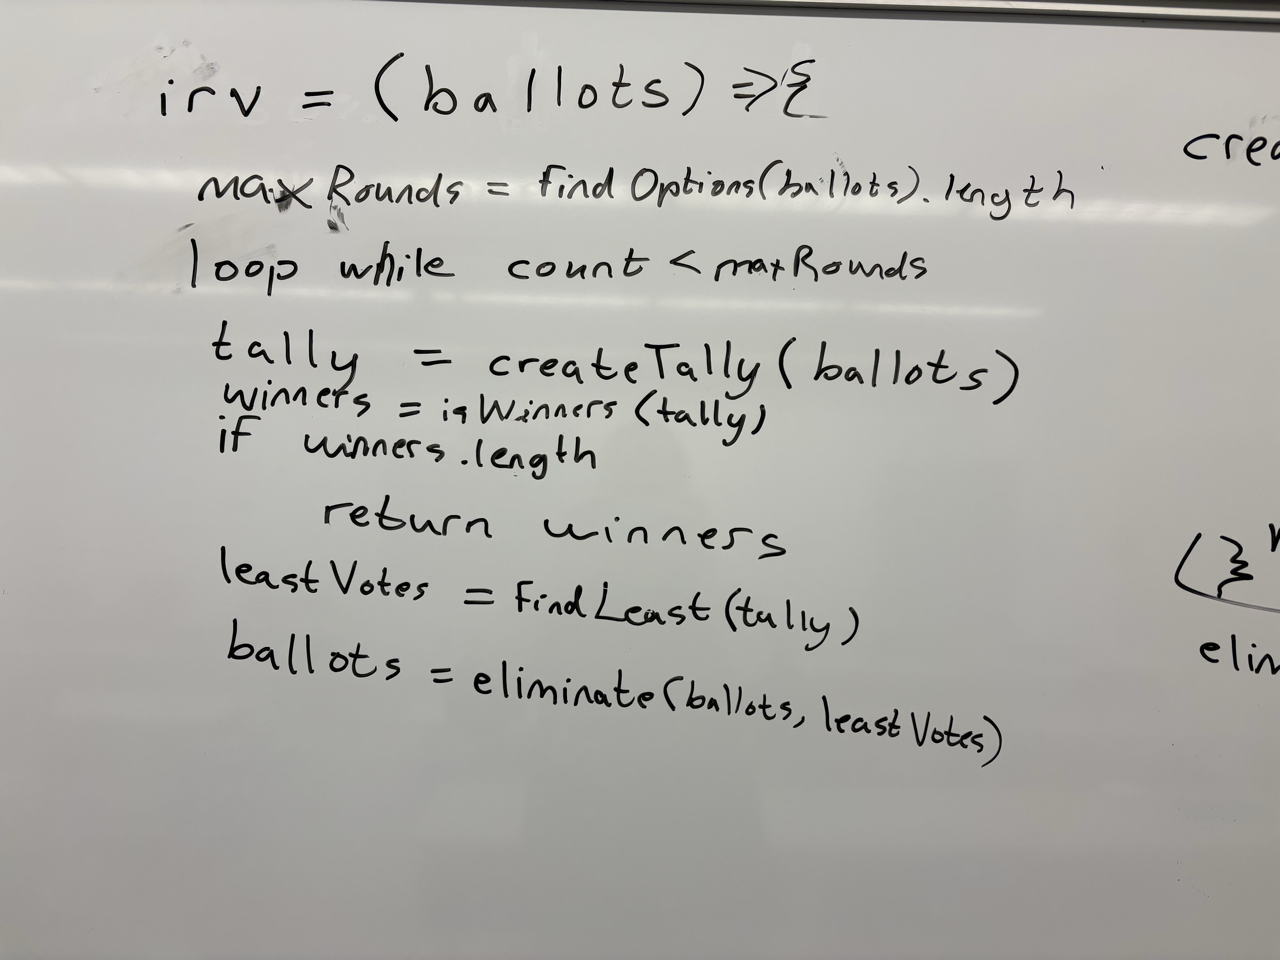 irv = (ballots) => {
maxRounds = findOptions(ballots).length
loop while count < maxRounds
tally = createTally(ballots)
winners = isWinners(tally)
if winners.length
return winners
leastVotes = findLeast(tally)
ballots = eliminate(ballots, leastVotes)
crea
(}
elim